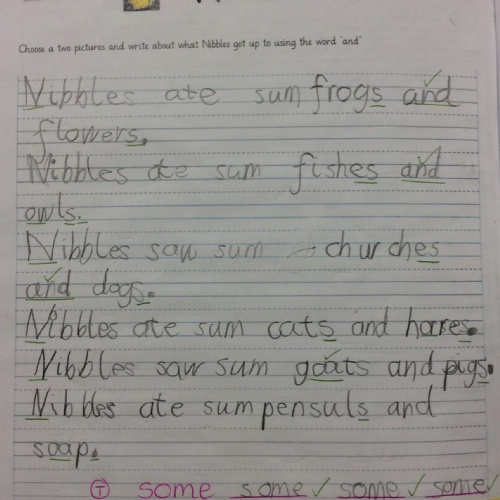 Choose a two pictures and write about what Nibbles got up to using the word 'and'
Nibbles ate sum frogs and
flowers.
Nibbles ate sum fishes and
owls.
Nibbles saw sum churches
and dogs.
Nibbles ate sum cats and horses.
Nibbles saw sum goats and pigs.
Nibbles ate sum pensuls and
soap.
T some some some some